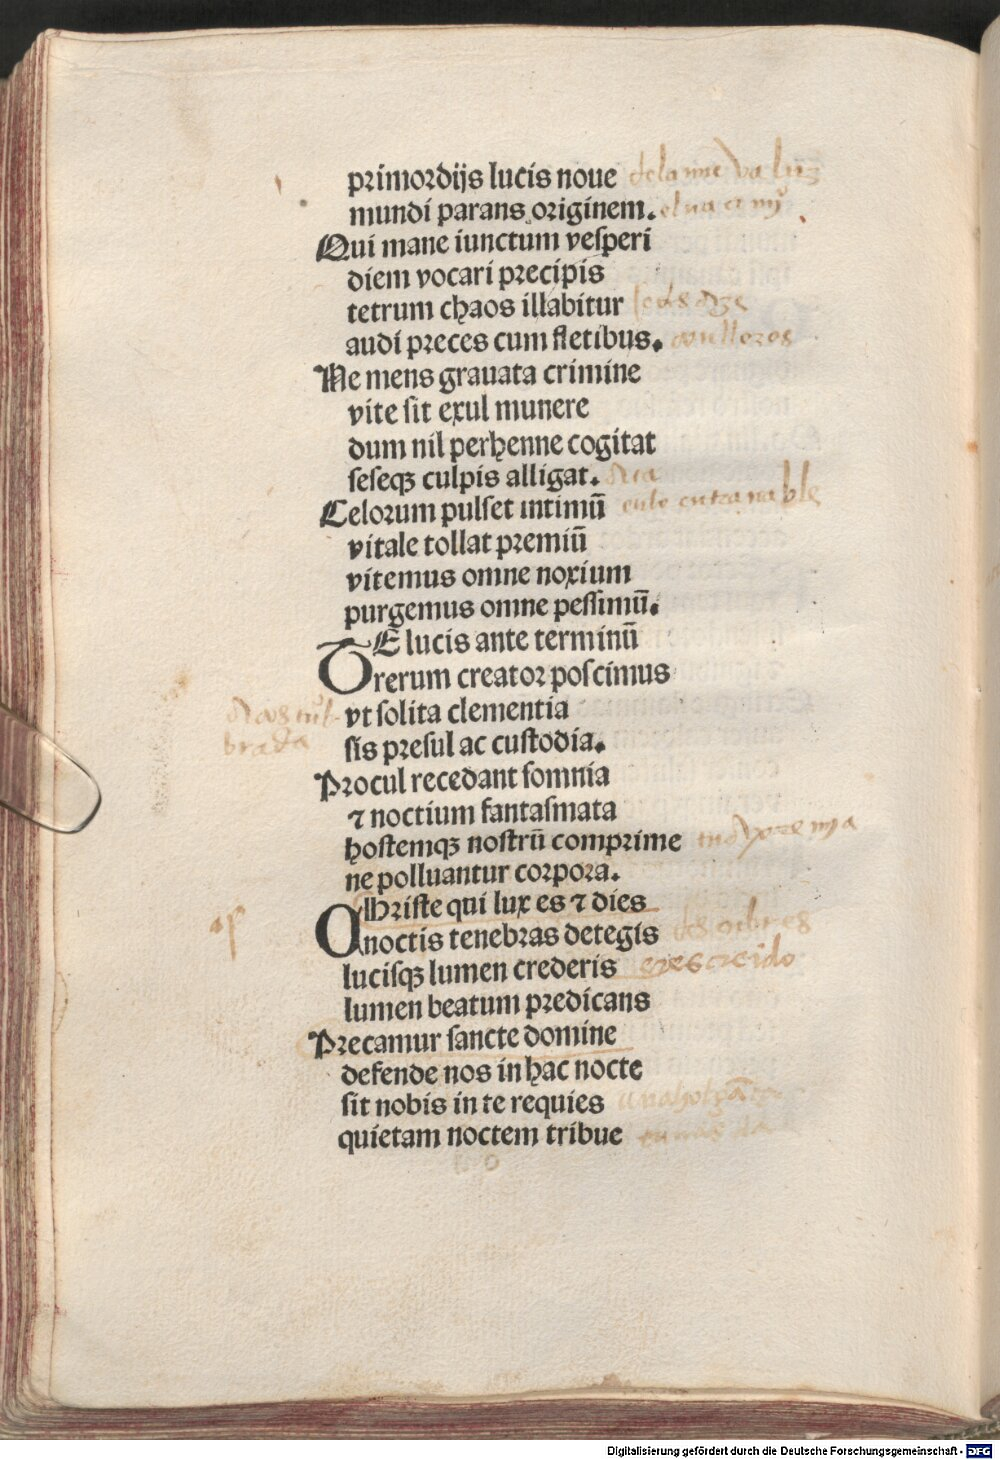 primordijs lucis noue dela nueva luz
mundi parans originem.
Qui mane iunctum vesperi
diem vocari precipis
tetrum chaos illabitur
audi preces cum fletibus.
Ne mens grauata crimine
vite sit exul munere
dum nil perhenne cogitat
seseqꝫ culpis alligat.
Celorum pulset intimū
vitale tollat premiū
vitemus omne noxium
purgemus omne pessimū.
TE lucis ante terminū
rerum creator poscimus
vt solita clementia
sis presul ac custodia.
Procul recedant somnia
⁊ noctium fantasmata
hostemqꝫ nostrū comprime
ne polluantur corpora.
CHriste qui lux es ⁊ dies
noctis tenebras detegis
lucisqꝫ lumen crederis eres creido
lumen beatum predicans
Precamur sancte domine
defende nos in hac nocte
sit nobis in te requies
quietam noctem tribue
Digitalisierung gefördert durch die Deutsche Forschungsgemeinschaft - DFG